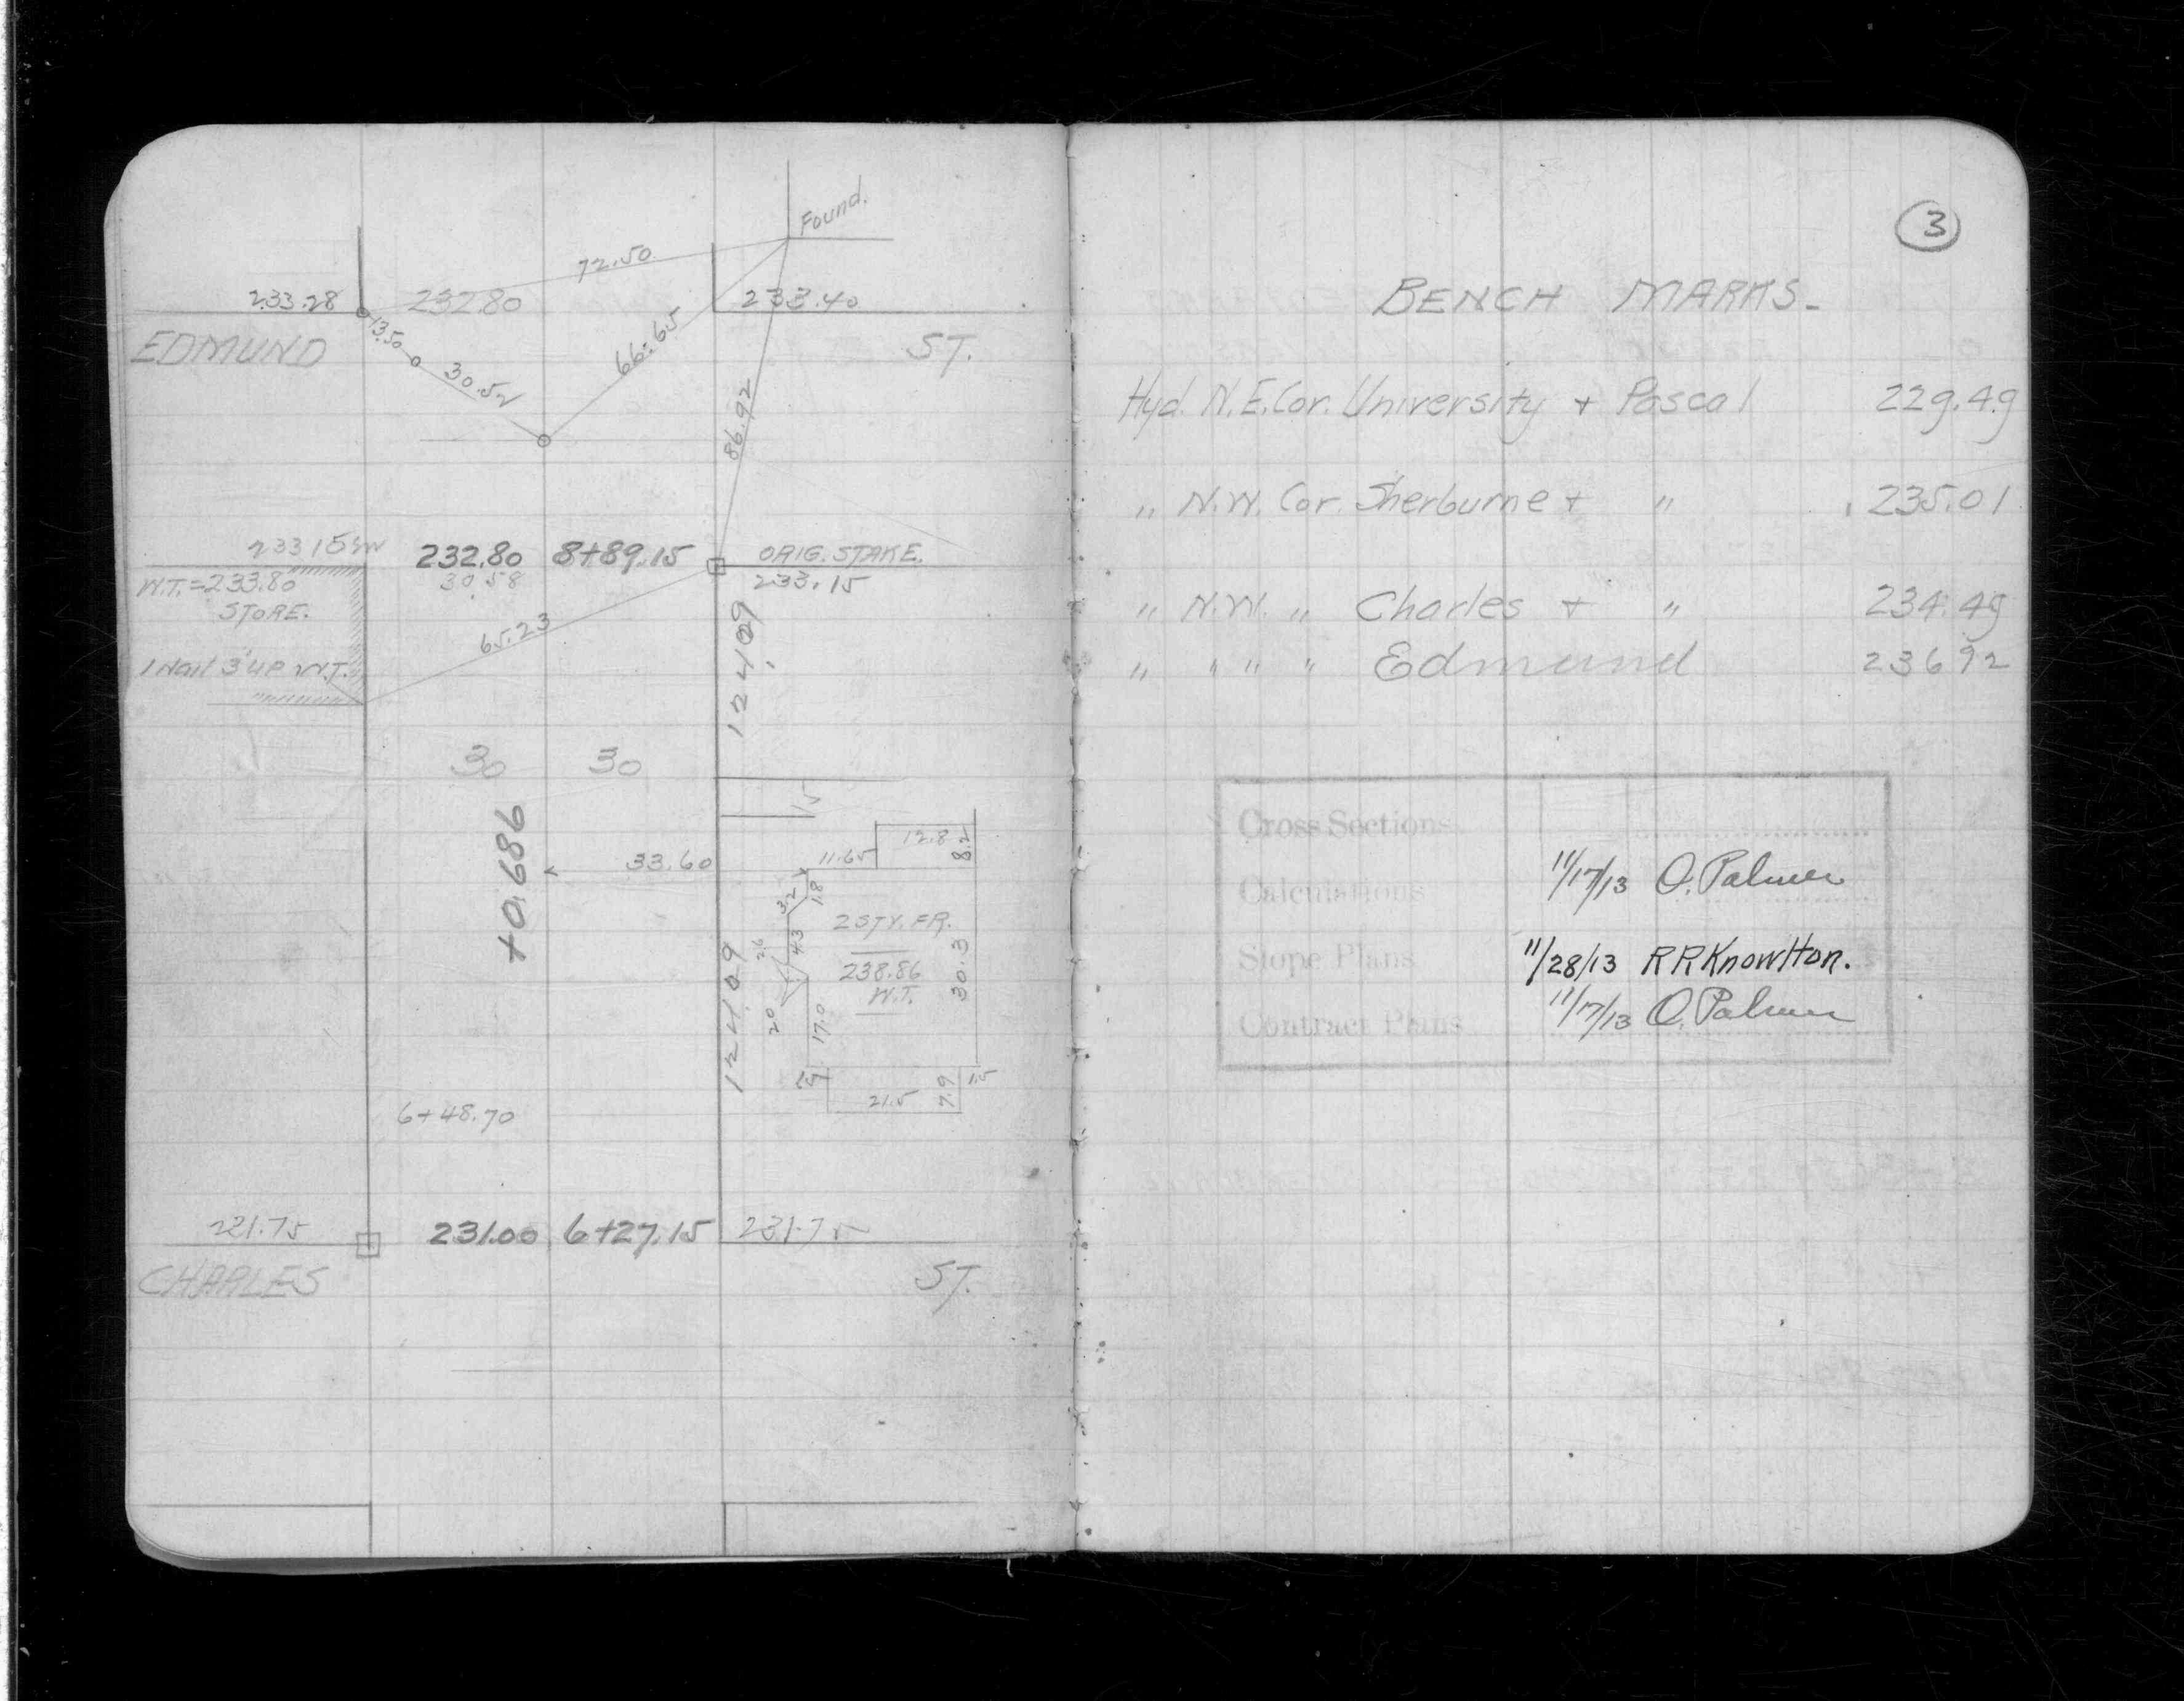 Found.
72.50
233.28 232.80 233.40
EDMUND ST.
13.50
30.52
66.65
86.92
233 15
232.80 8+89.15 ORIG. STAKE.
W.T.=233.80 30.58 233.15
STORE.
65.23
1 Nail 3' up W.T.
124.09
30 30
15
+0.686
12.8
8.2
33.60 11.65
3.2 1.8
2 STY. FR.
4.3
2.6
238.86
W.T.
30.3
20
17.0
124.09
1.5
21.5 7.9
6+48.70
231.00 6+27.15
CHARLES ST.
3
BENCH MARKS-
Hyd. N.E. Cor. University + Pascal 229.49
" N.W. Cor. Sherburne + " 235.01
" N.W. " Charles + " 234.49
" " " " Edmund 236 92
Cross Sections
Calculations 11/17/13 O. Palmer
Slope Plans 11/28/13 R R Knowlton.
Contract Plans 11/17/13 O. Palmer